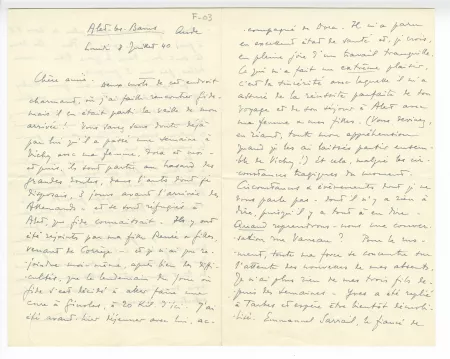 F-03
Alet-les-Bains Aude
Lundi 8 Juillet 40
Chère amie - deux mots de cet endroit
charmant, où j'ai failli rencontrer Gide.
mais il en était parti la veille de mon
arrivée ! Vous savez sans doute déjà
par lui qu'il a passé une semaine à
Vichy avec ma femme, Dora et moi -
et puis, ils sont partis au hasard des
grandes routes, dans l'auto dont je
disposais, 2 jours avant l'arrivée des
Allemands - et se sont réfugiés à
Alet, que Gide connaissait. Ils y ont
été rejoints par ma fille Renée & filles,
venant de Corrèze - et je n'ai pu re-
joindre moi-même, après bien des diffi-
cultés, que le lendemain du jour où
Gide s'est décidé à aller faire une
cure à Ginoles, à 20 Kil d'ici. J'ai
été avant-hier déjeuner avec lui, ac-
compagné de Dora. Il m'a paru
en excellent état de santé et, je crois,
en pleine joie d'un travail tranquille.
Ce qui m'a fait un extrême plaisir,
c'est la sincérité avec laquelle il m'a
assuré de la réussite parfaite de son
voyage et de son séjour à Alet avec
ma femme & mes filles. (Vous devinez,
en riant, toute mon appréhension
quand je les ai laissés partir ensem-
ble de Vichy !) Et cela, malgré les cir-
constances tragiques du moment.
Circonstances & événements dont je ne
vous parle pas - dont il n'y a rien à
dire, puisqu'il y a tout à en dire -
Quand reprendrons-nous une conver-
sation rue Vaneau ? Pour le mo-
ment, toute ma force se concentre sur
l'attente des nouvelles de mes absents.
Je n'ai plus rien de mes trois fils de-
puis des semaines - Yves a été replié
à Tarbes et espère être bientôt démobi-
lisé. Emmanuel Sarrail, le fiancé de